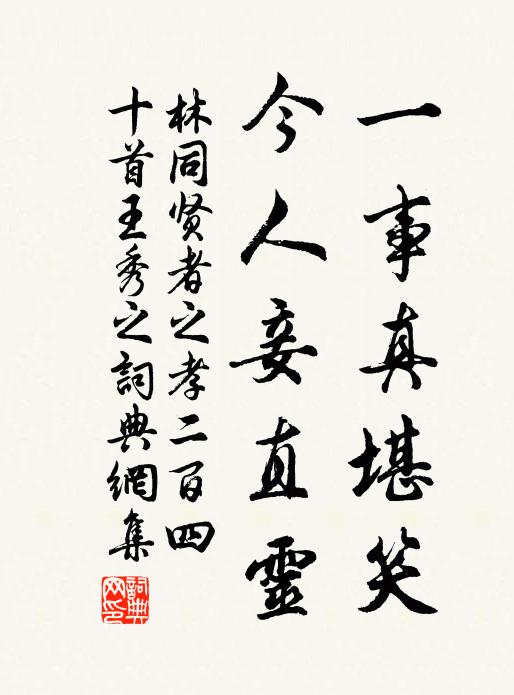 一事真堪笑
今人妾直靈
林同贤者之孝二百四
十首王秀之詞典網集
詞典网印